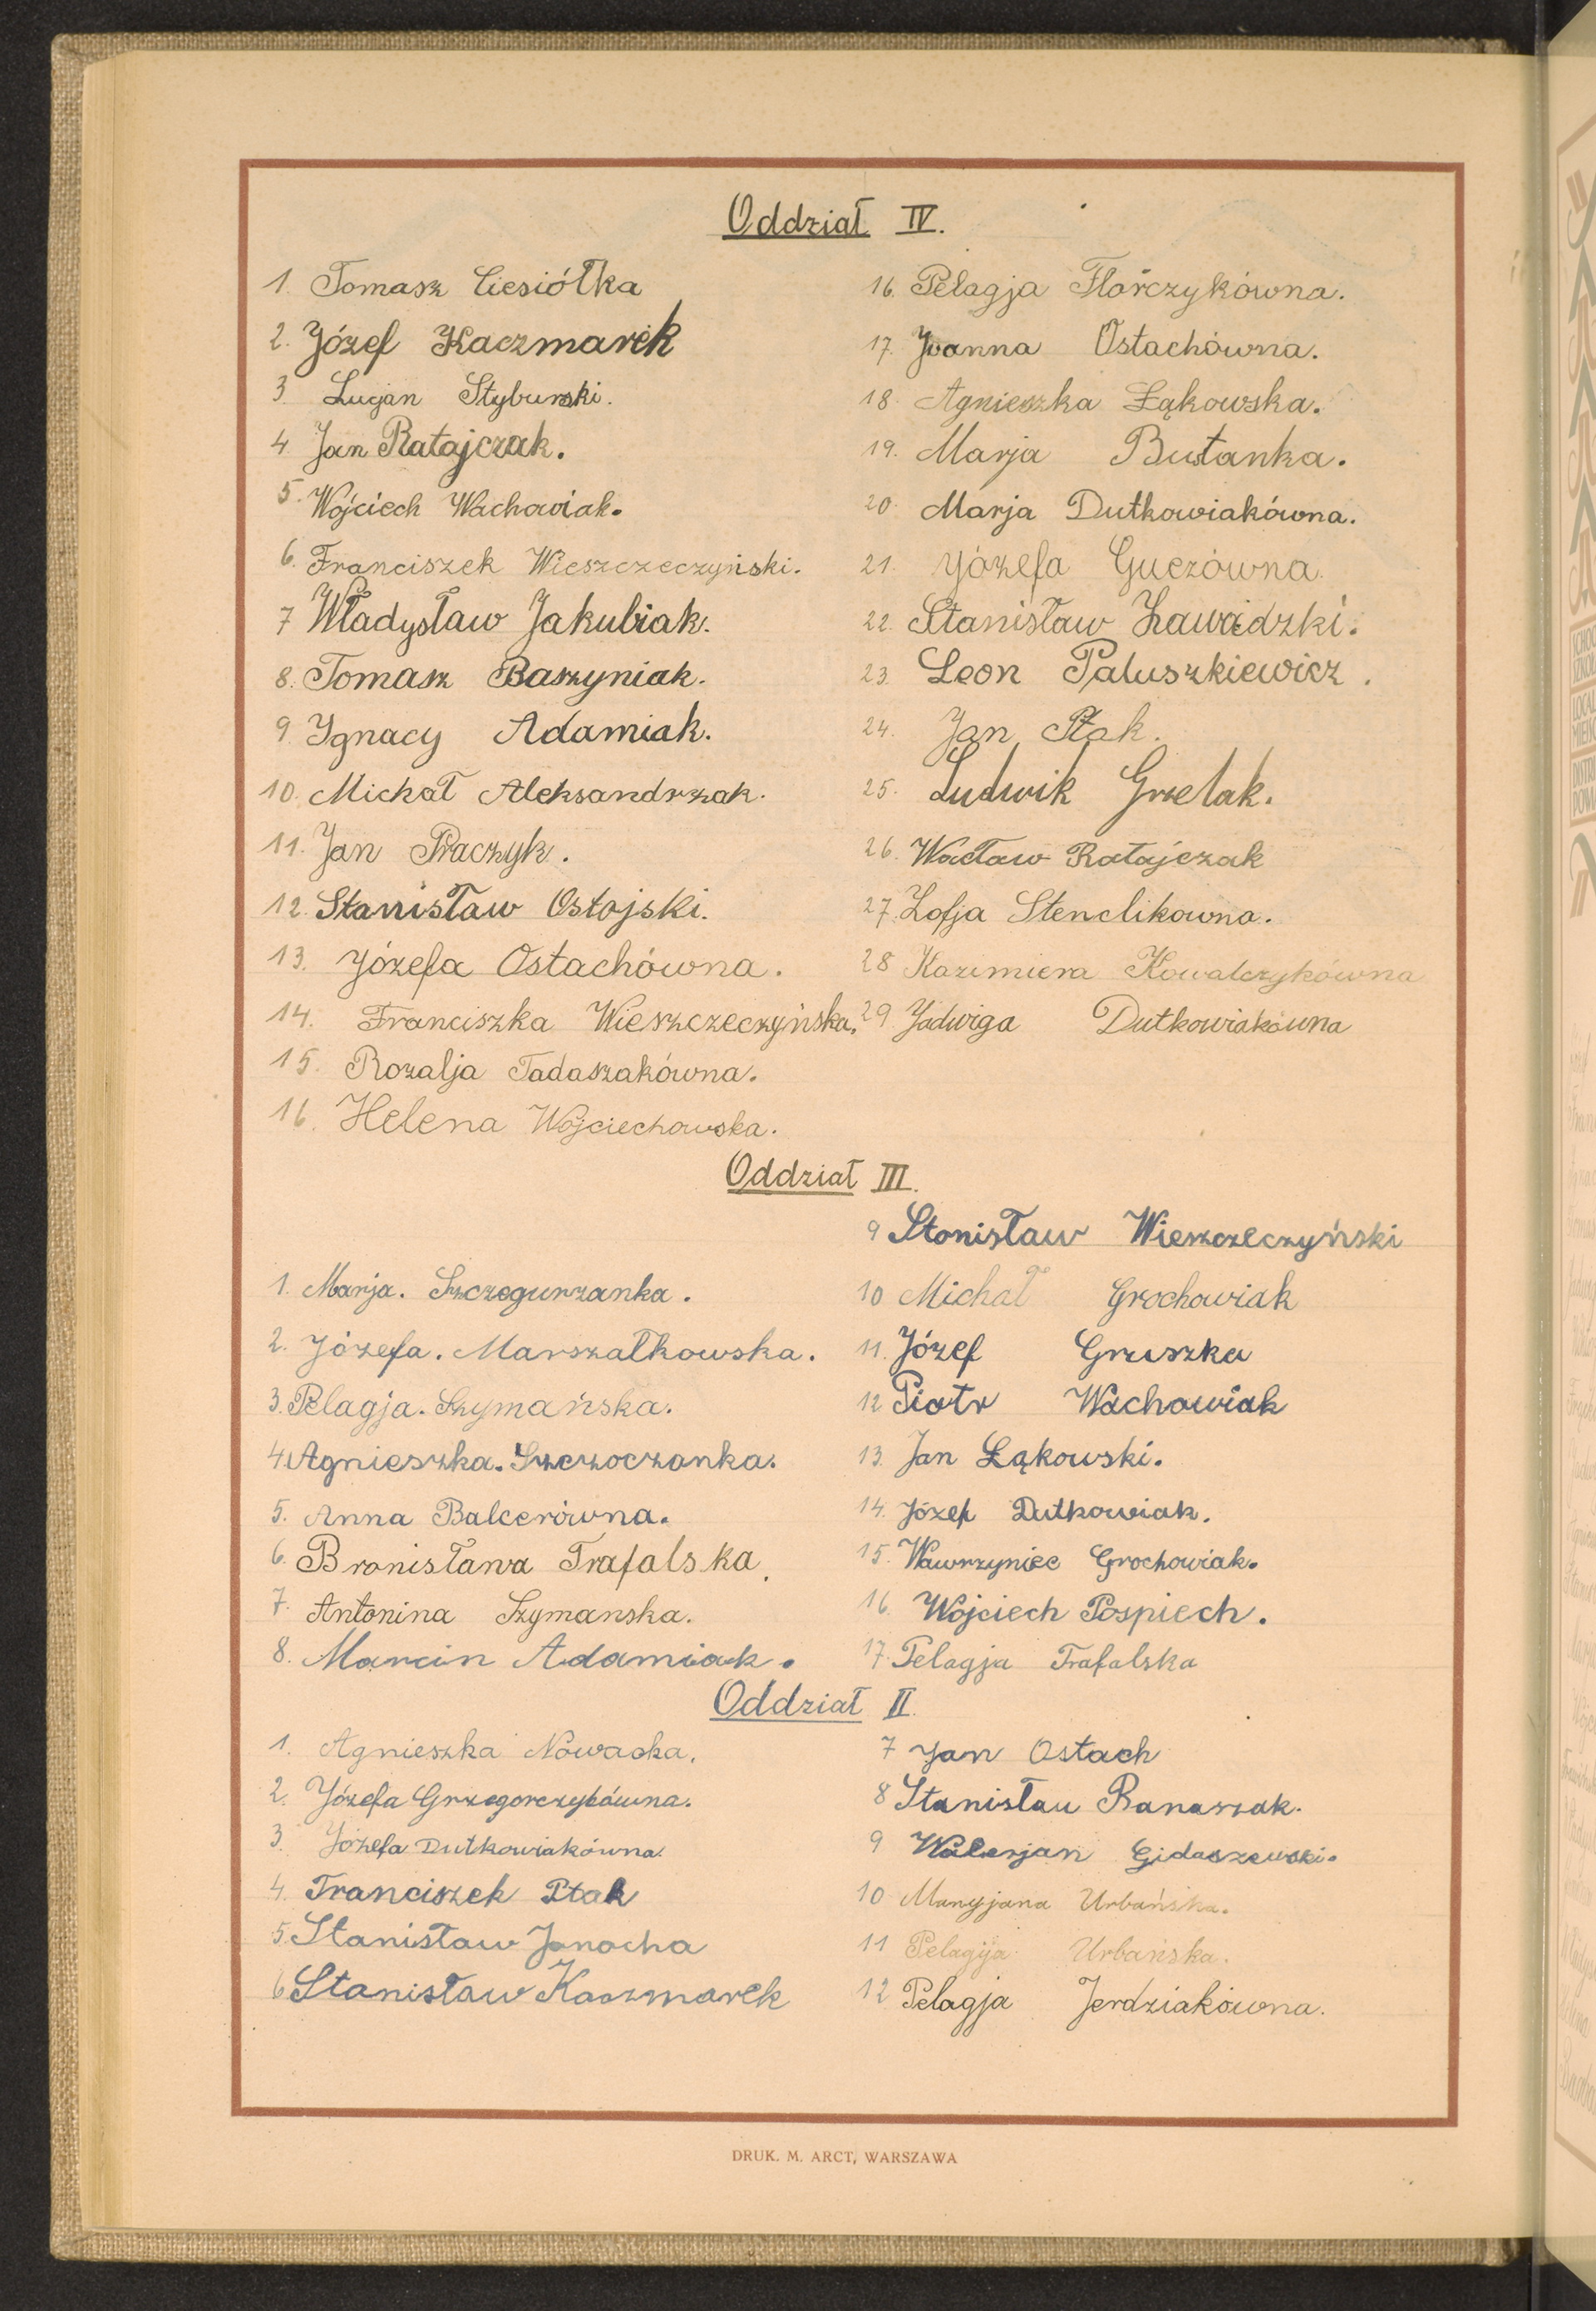 Oddział IV.
1. Tomasz Ciesiółka
2. Józef Kaczmarek
3. Lucjan Styburski.
4 Jan Ratajczak.
5. Wojciech Wachowiak.
6. Franciszek Wieszczeczyński.
7 Władysław Jakubiak.
8. Tomasz Baszyniak.
9. Ignacy Adamiak.
10. Michał Aleksandrzak.
11. Jan Praczyk.
12. Stanisław Ostojski.
13. Józefa Ostachówna.
14. Franciszka Wieszczeczyńska.
15. Rozalja Tadaszakówna.
16. Helena Wojciechowska.
16. Pelagja Florczykówna.
17. Joanna Ostachówna.
18. Agnieszka Łąkowska.
19. Marja Butanka.
20. Marja Dutkowiakówna.
21. Józefa Guczówna.
22. Stanisław Zawadzki.
23. Leon Paluszkiewicz.
24. Jan Ptak.
25. Ludwik Grzelak.
26. Wacław Ratajczak
27. Zofja Stenclikowna.
28 Kazimiera Kowalczykówna
29 Jadwiga Dutkowiakówna
Oddział III.
1. Marja. Szczegurzanka.
2. Józefa. Marszałkowska.
3. Pelagja. Szymańska.
4. Agnieszka. Szczoczanka.
5. Anna Balcerówna.
6. Bronisława Trafalska.
7. Antonina Szymanska.
8. Marcin Adamiak.
9 Stonisław Wieszczeczyński
10 Michał Grochowiak
11. Józef Gruszka
12 Piotr Wachowiak
13. Jan Łąkowski.
14. Józef Dutkowiak.
15. Wawrzyniec Grochowiak.
16. Wojciech Pospiech.
17. Pelagja Trafalska
Oddział II.
1. Agnieszka Nowacka.
2. Józefa Grzegorczykówna.
3. Józefa Dutkowiakówna.
4. Franciszek Ptak
5. Stanisław Janocha
6 Stanisław Kaczmarek
7 Jan Ostach
8 Stanisłau Banaszak.
9 Walerjan Gidaszewski.
10 Maryjana Urbańska.
11 Pelagija Urbańska.
12 Pelagja Jerdziakówna.
DRUK. M. ARCT, WARSZAWA